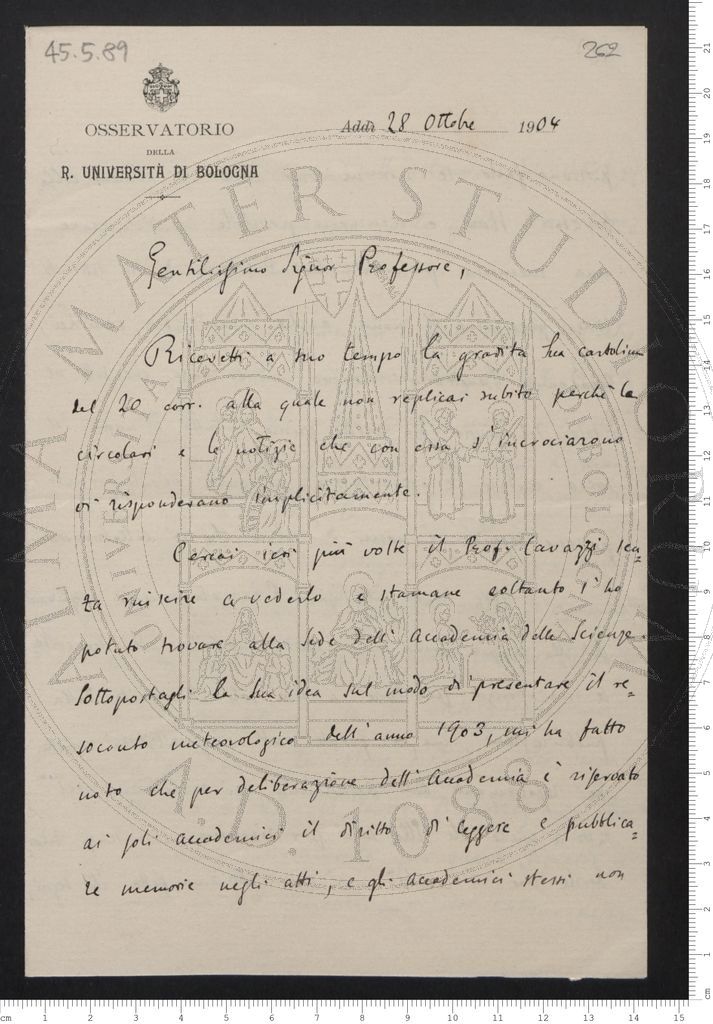 45.5.89
262
OSSERVATORIO
DELLA
R. UNIVERSITÀ DI BOLOGNA
Addì 28 Ottobre 1904
Gentilissimo Signor Professore,
Ricevetti a suo tempo la gradita Sua cartolina
del 20 corr. alla quale non replicai subito perchè le
circolari e le notizie che con essa s'incrociarono
vi rispondevano implicitamente.
Cercai ieri più volte il Prof. Cavazzi sen=
za riuscire a vederlo e stamane soltanto l'ho
potuto trovare alla Sede dell'Accademia delle Scienze.
Sottopostagli la Sua idea sul modo di presentare il re=
soconto meteorologico dell'anno 1903, mi ha fatto
noto che per deliberazione dell'Accademia è riservato
ai soli accademici il diritto di leggere e pubblica=
re memorie negli atti, e gli accademici stessi non
ALMA MATER STUDIORUM
A.D. 1088
cm
1 2 3 4 5 6 7 8 9 10 11 12 13 14 15
21
20
19
18
17
16
15
14
13
12
11
10
9
8
7
6
5
4
3
2
1
cm